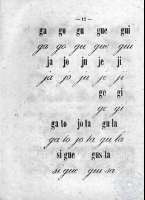 — 12 —
ga go gu gue gui
ga go gu gue gui
ja jo ju je ji
ja jo ju je ji
ge gi
ge gi
ga to jo ta gu la
ga to jo ta gu la
si gue gus ta
si gue gus ta